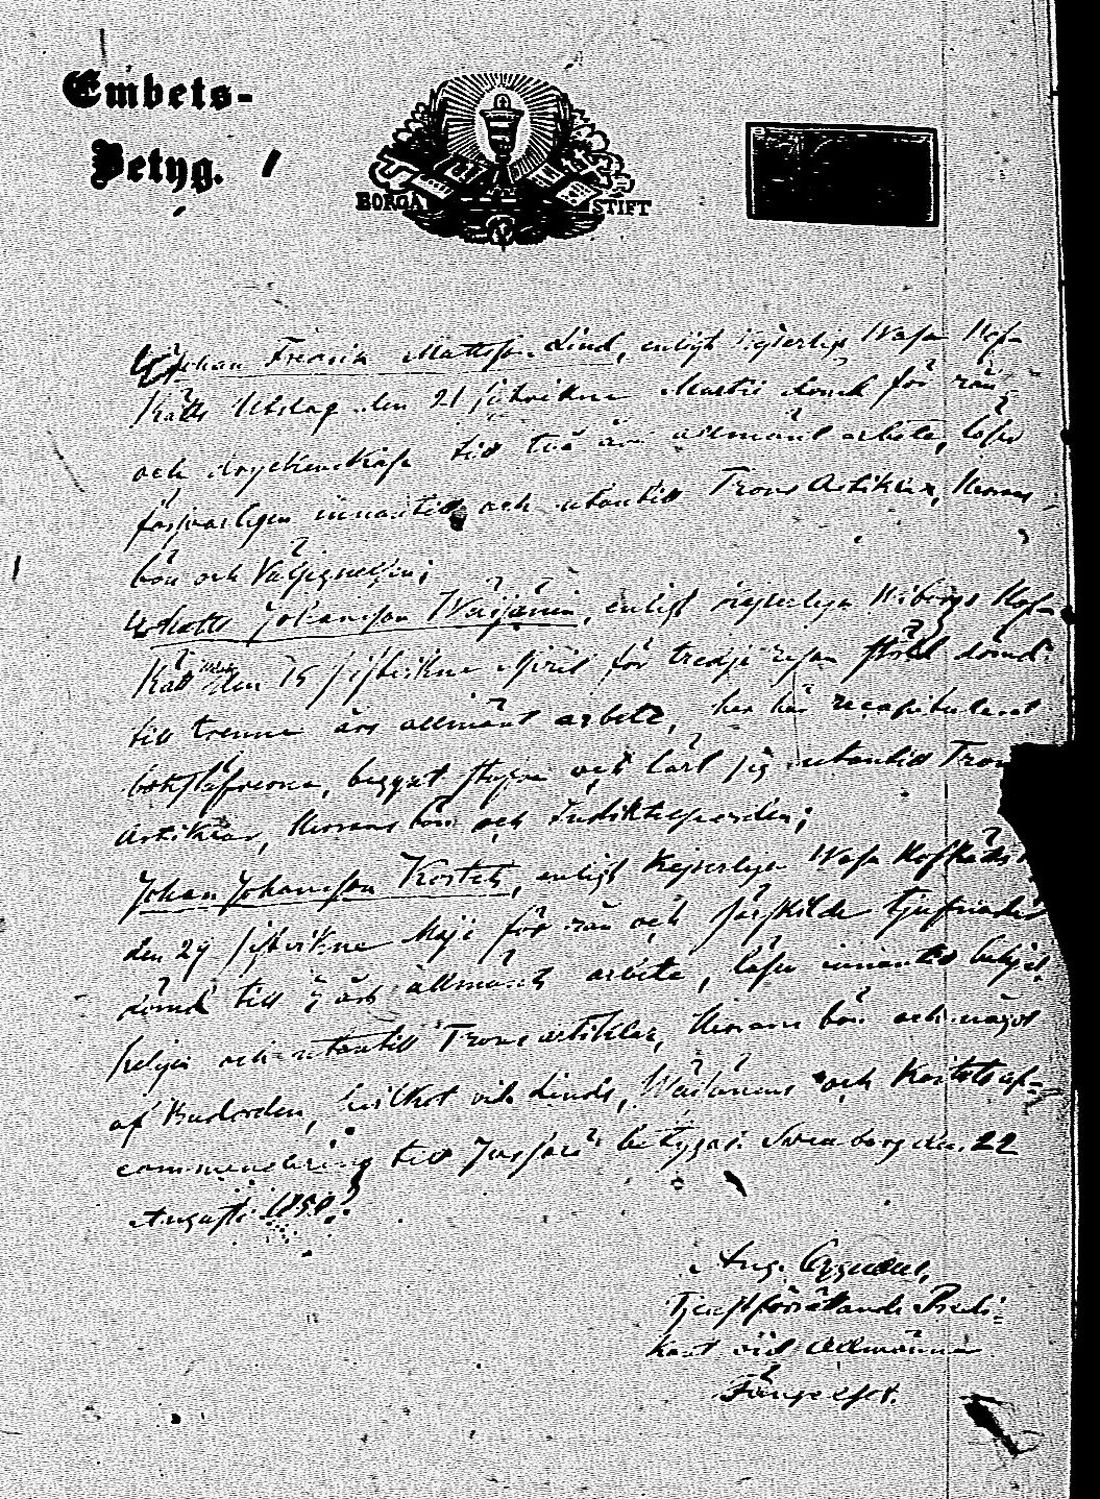 Embets-
Betyg.
BORGÅ STIFT
Johan Fredrik Mattsson Lind, enligt Kejserliga Wasa Hof-
Rätts Utslag den 21 sistvikne Martii dömd för rån
och dryckenskap till två års allmänt arbete, läser
försvarligen innantill och utantill Trons Artiklar, Herrans
bön och Välsignelsen;
Matts Johansson Wäisänen, enligt Kejserliga Wiborgs Hof-
Rätt den 15 sistvikne April för tredje resan stöld dömd
till trenne års allmänt arbete, har här recapitulerat
bokstäfverna, begynt stafva och lärt sig utantill Trons
Artiklar, Herrans bön och
Johan Johansson Kostet, enligt Kejserliga Wasa Hofrätts
den 29 sistvikne Maji för rån och särskilda tjufnader
dömd till års allmänt arbete, läser innantill
och utantill Trons artiklar, Herrans bön och något
af Budorden, hvilket vid Linds, Wäisänens och Kostets af-
commendering till betygas. Sveaborg den 22
Augusti 1859.
Aug.
Tjenstförrättande Predi-
kant vid Allmänna
Fängelset.